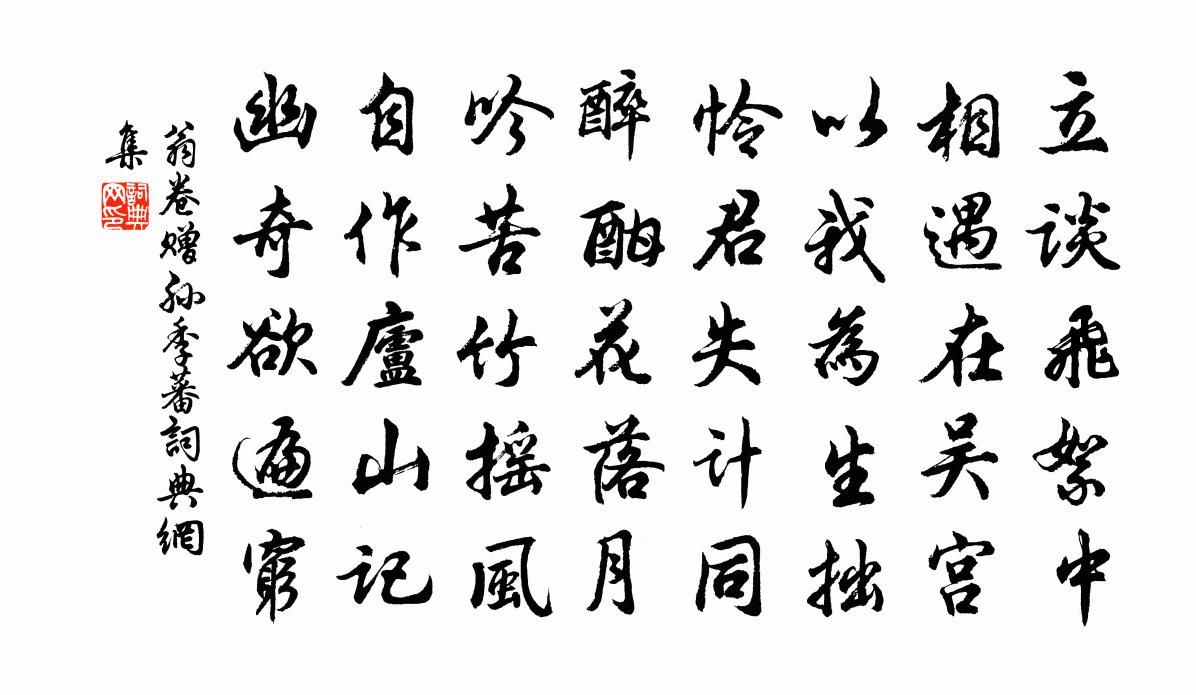 立谈飛絮中
相遇在吴宫
以我為生拙
怜君失计同
醉酣花落月
吟苦竹摇風
自作廬山记
幽奇欲遍窮
翁卷赠孙季蕃詞典網
集
詞典网印